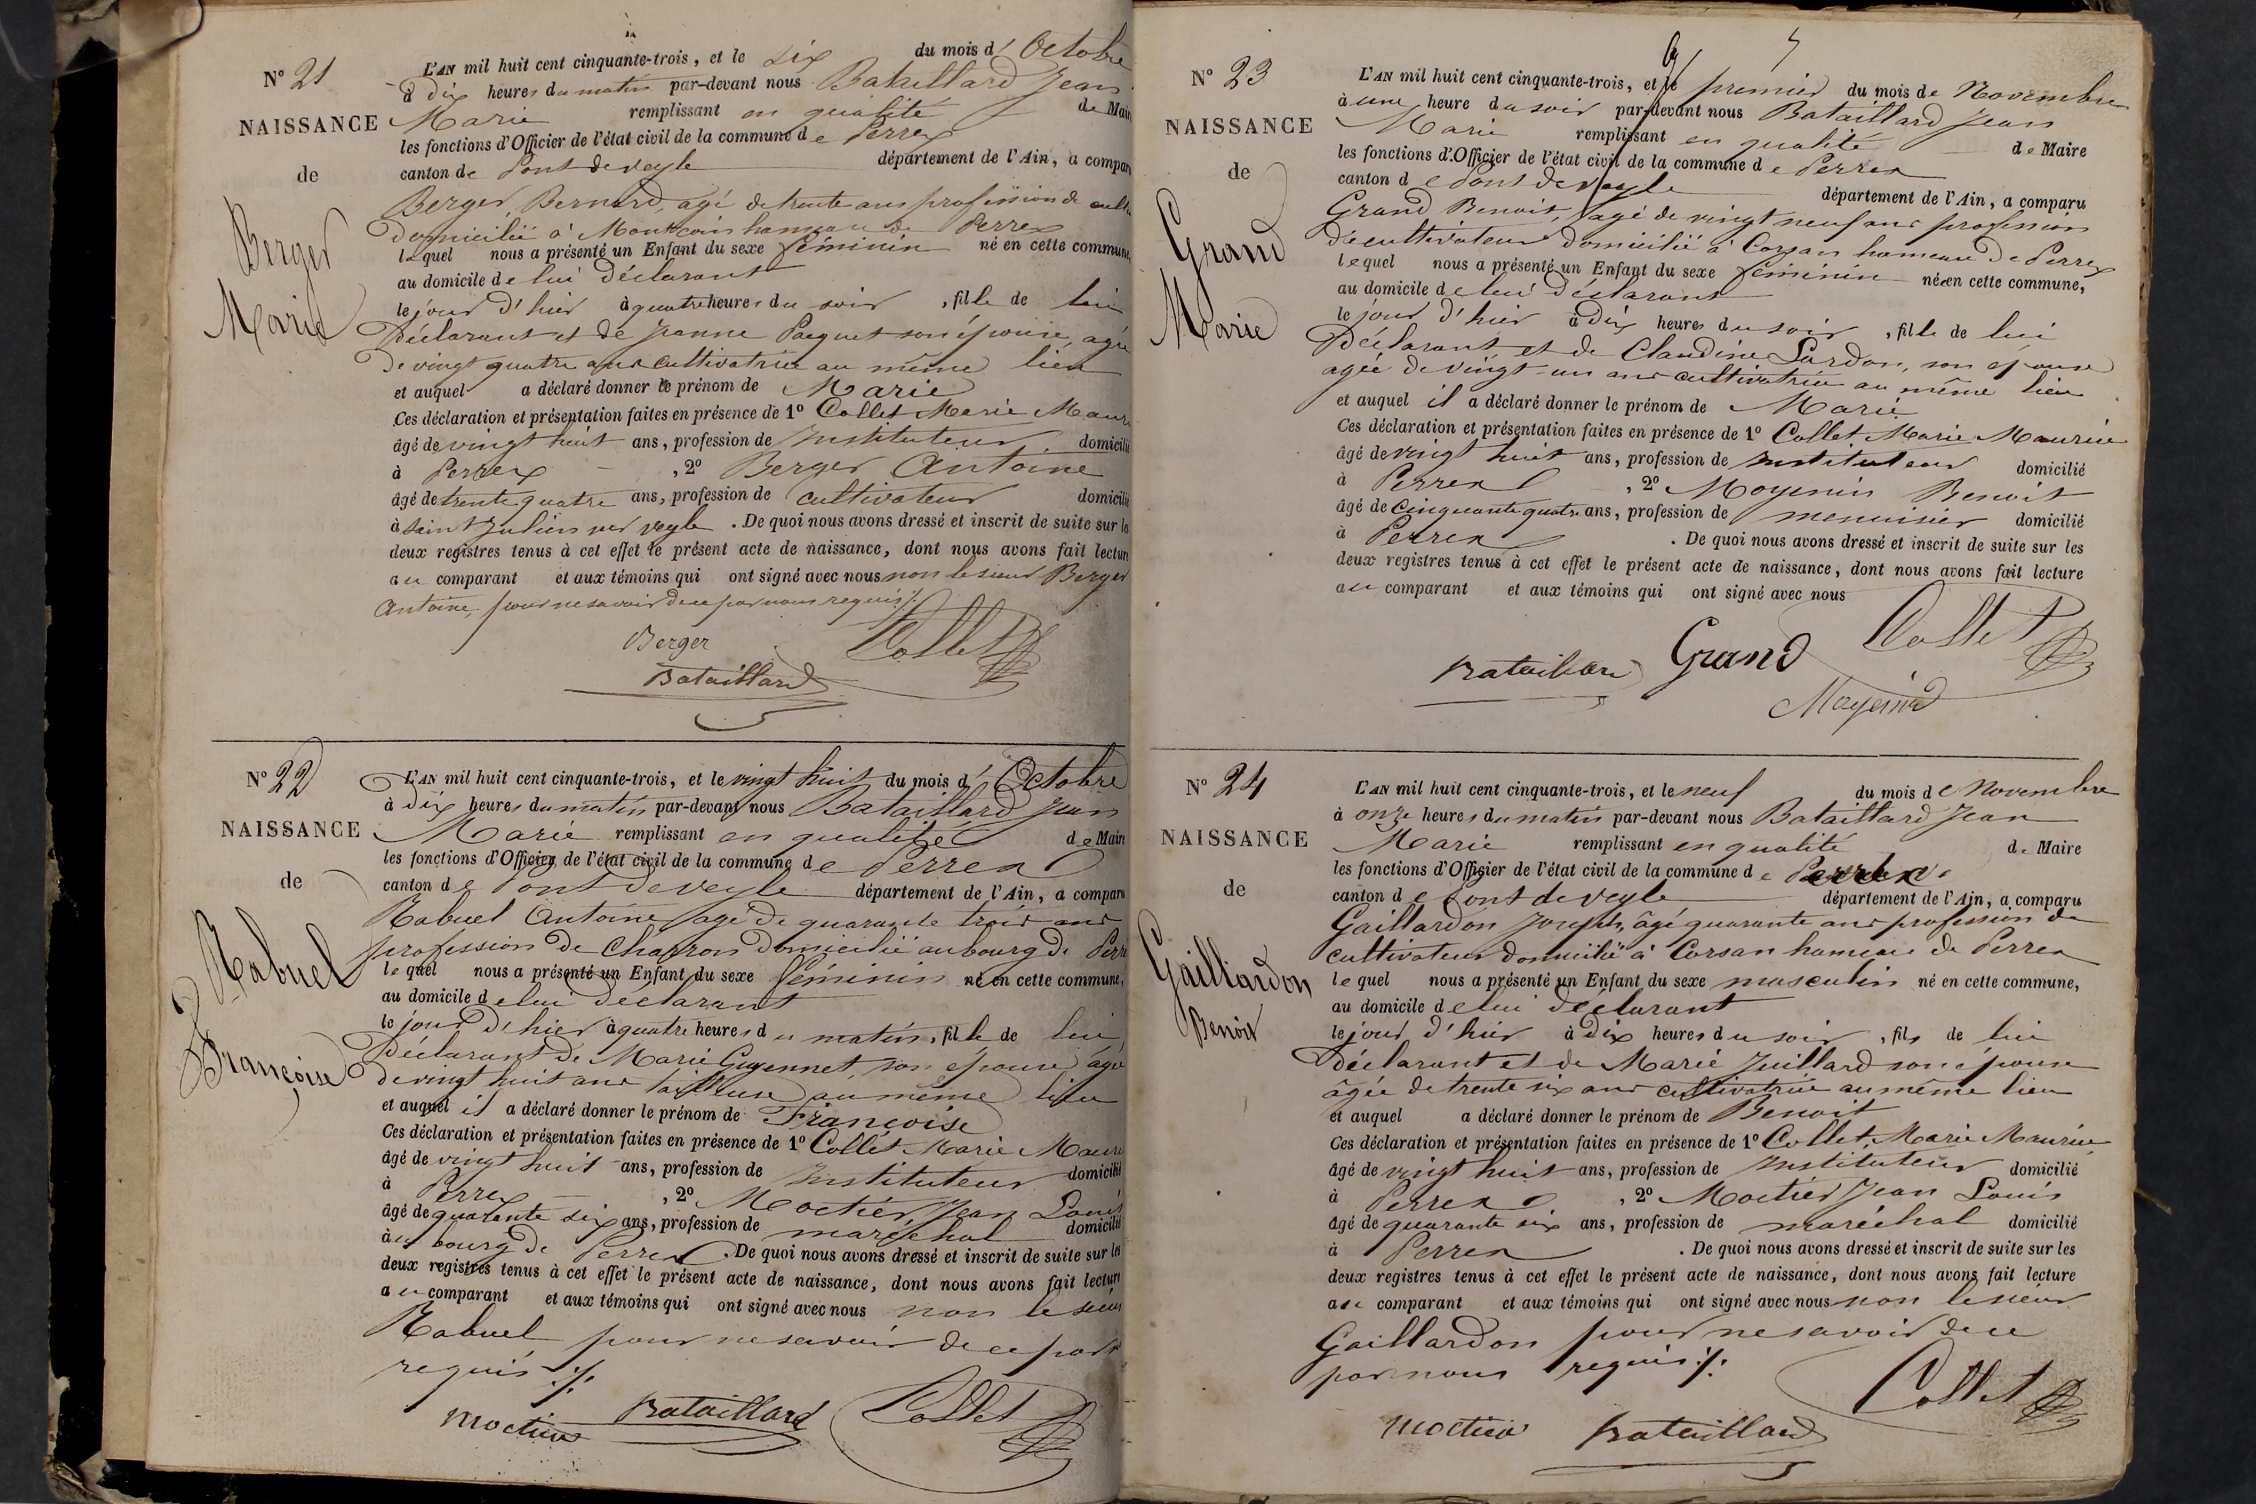 N° 21
NAISSANCE
de
Berger
Marie
L'AN mil huit cent cinquante-trois, et le six du mois d' Octobre
à dix heures du matin par-devant nous Bataillard Jean
Marie remplissant en qualité de Maire
les fonctions d'Officier de l'état civil de la commune de Perrex
canton de Pont de veyle département de l'Ain, a comparu
Berger Bernard, agé de trente ans profession de
domicilié à Montcoin hameau de Perrex
lequel nous a présenté un Enfant du sexe féminin né en cette commune,
au domicile de lui déclarant
le jour d'hier à quatre heures du soir, fille de lui
Déclarant et de Jeanne Paquet son épouse, agée
de vingt quatre ans cultivatrice au même lieu
et auquel a déclaré donner le prénom de Marie
Ces déclaration et présentation faites en présence de 1° Collet Marie Mauri
âgé de vingt huit ans, profession de Instituteur domicilié
à Perrex , 2° Berger Antoine
âgé de trente quatre ans, profession de cultivateur domicilié
à saint Julien sur veyle. De quoi nous avons dressé et inscrit de suite sur le
deux registres tenus à cet effet le présent acte de naissance, dont nous avons fait lecture
au comparant et aux témoins qui ont signé avec nous non le sieur Berger
Antoine, pour ne savoir de ce par nous requis ./.
Berger Collet
Bataillard
N° 22
NAISSANCE
de
Rabuel
Françoise
L'AN mil huit cent cinquante-trois, et le vingt huit du mois d' Octobre
à dix heures du matin par-devant nous Bataillard Jean
Marie remplissant en qualité de Maire
les fonctions d'Officier de l'état civil de la commune de Perrex
canton de Pont de veyle département de l'Ain, a comparu
Rabuel Antoine agé de quarante trois ans
profession de charron domicilié au bourg de Perre
lequel nous a présenté un Enfant du sexe féminin né en cette commune,
au domicile de lui déclarant
le jour d'hier à quatre heures du matin, fille de lui
Déclarant de Marie Guyennet, son épouse agée
de vingt huit ans tailleuse au même lieu
et auquel il a déclaré donner le prénom de Françoise
Ces déclaration et présentation faites en présence de 1° Collet Marie Mauri
âgé de vingt huit ans, profession de Instituteur domicilié
à Perrex , 2° Moctier Jean Louis
âgé de quarante six ans, profession de maréchal domicilié
au bourg de Perrex. De quoi nous avons dressé et inscrit de suite sur les
deux registres tenus à cet effet le présent acte de naissance, dont nous avons fait lecture
au comparant et aux témoins qui ont signé avec nous non le sieur
Rabuel pour ne savoir de ce par
requis ./.
Moctier Bataillard Collet
N° 23
NAISSANCE
de
Grand
Marie
L'AN mil huit cent cinquante-trois, et le premier du mois de Novembre
à une heure du soir par-devant nous Bataillard Jean
Marie remplissant en qualité de Maire
les fonctions d'Officier de l'état civil de la commune de Perrex
canton de Pont de veyle département de l'Ain, a comparu
Grand Benoit, agé de vingt neuf ans profession
de cultivateur domicilié à Corsan hameau de Perrex
lequel nous a présenté un Enfant du sexe féminin née en cette commune,
au domicile de lui déclarant
le jour d'hier à dix heures du soir, fille de lui
Déclarant et de Claudine Lardon, son épouse
agée de vingt-un ans cultivatrice au même lieu
et auquel il a déclaré donner le prénom de Marie
Ces déclaration et présentation faites en présence de 1° Collet Marie Maurice
âgé de vingt huit ans, profession de Instituteur domicilié
à Perrex , 2° Moyenin Benoit
âgé de cinquante quatre ans, profession de menuisier domicilié
à Perrex . De quoi nous avons dressé et inscrit de suite sur les
deux registres tenus à cet effet le présent acte de naissance, dont nous avons fait lecture
au comparant et aux témoins qui ont signé avec nous
Bataillard Grand Collet
Moyenin
N° 24
NAISSANCE
de
Gaillardon
Benoit
L'AN mil huit cent cinquante-trois, et le neuf du mois de Novembre
à onze heures du matin par-devant nous Bataillard Jean
Marie remplissant en qualité de Maire
les fonctions d'Officier de l'état civil de la commune de Perrex
canton de Pont de veyle département de l'Ain, a comparu
Gaillardon Joseph, âgé quarante ans profession de
cultivateur domicilié à Corsan hameau de Perrex
lequel nous a présenté un Enfant du sexe masculin né en cette commune,
au domicile de lui déclarant
le jour d'hier à dix heures du soir, fils de lui
déclarant et de Marie Juillard son épouse
âgée de trente six ans cultivatrice au même lieu
et auquel a déclaré donner le prénom de Benoit
Ces déclaration et présentation faites en présence de 1° Collet Marie Maurice
âgé de vingt huit ans, profession de Instituteur domicilié
à Perrex , 2° Moctier Jean Louis
âgé de quarante six ans, profession de maréchal domicilié
à Perrex . De quoi nous avons dressé et inscrit de suite sur les
deux registres tenus à cet effet le présent acte de naissance, dont nous avons fait lecture
au comparant et aux témoins qui ont signé avec nous non le sieur
Gaillardon pour ne savoir de ce
par nous requis ./.
Moctier Bataillard Collet